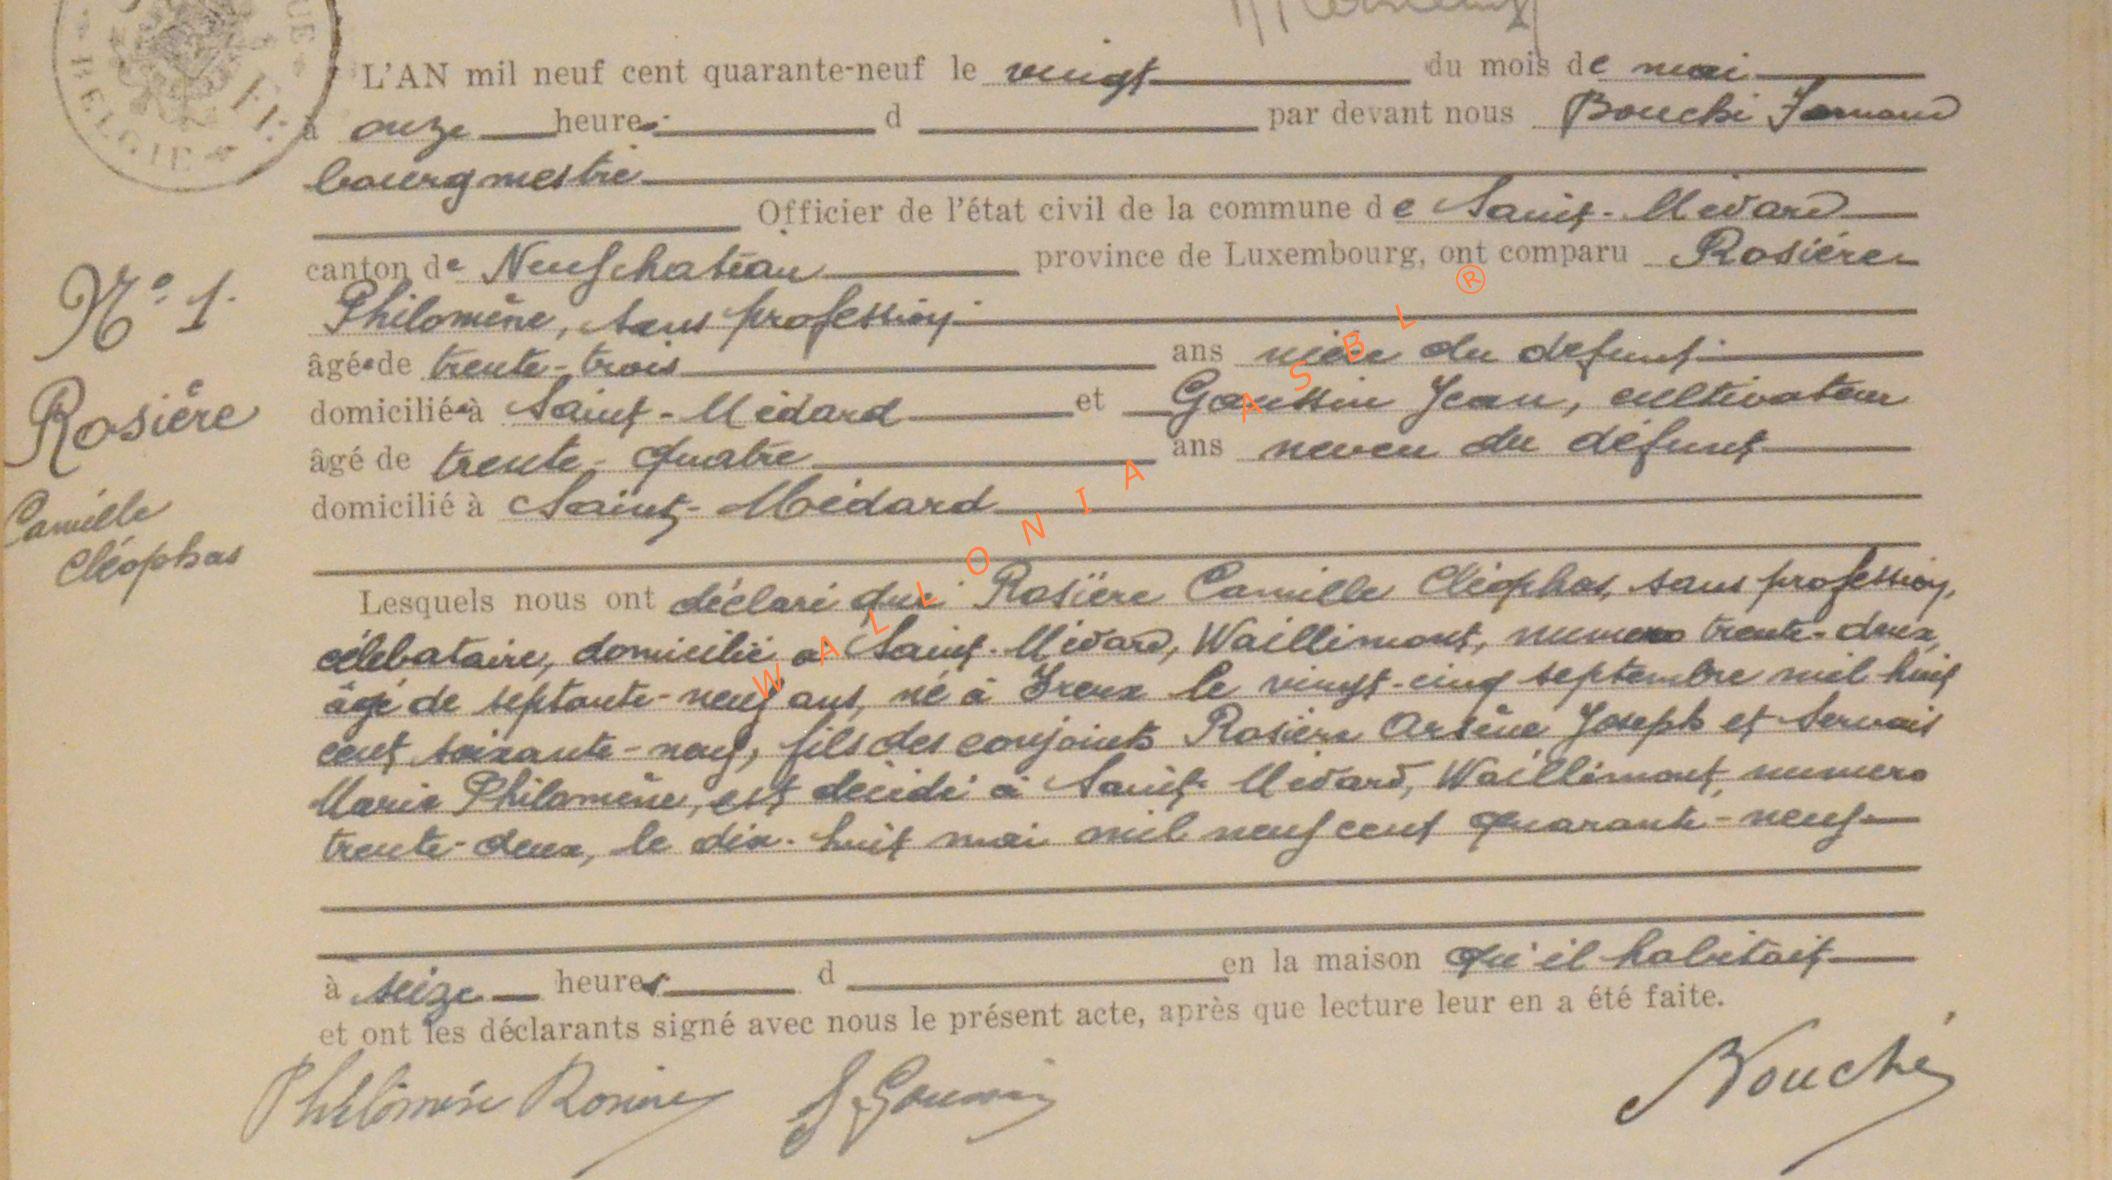 L'AN mil neuf cent quarante-neuf le vingt du mois de mai
à onze heures d par devant nous Bouché Fernand
bourgmestre
Officier de l'état civil de la commune de Saint-Médard
canton de Neufchateau province de Luxembourg, ont comparu Rosière
Philomène, sans profession
âgée de trente-trois ans nièce du défunt
domiciliée à Saint-Médard et Goussin Jean, cultivateur
âgé de trente-quatre ans neveu du défunt
domicilié à Saint-Médard
Lesquels nous ont déclaré que Rosière Camille Cléophas, sans profession,
célebataire, domicilié à Saint-Médard, Waillimont, numero trente-deux,
âgé de septante-neuf ans, né à Treux le vingt-cinq septembre mil huit
cent soixante-neuf, fils des conjoints Rosière Arsène Joseph et Servais
Marie Philomène, est décédé à Saint-Médard, Waillimont, numero
trente-deux, le dix-huit mai mil neuf cent quarante-neuf
à seize heures d en la maison qu'il habitait
et ont les déclarants signé avec nous le présent acte, après que lecture leur en a été faite.
Philomène Rosière J. Goussin Bouché
N° 1.
Rosière
Camille
Cléophas
BELGIE
WALLONIA ASBL ®